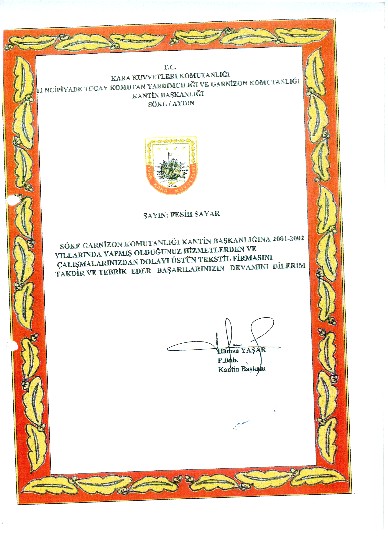 T.C.
KARA KUVVETLERİ KOMUTANLIĞI
PİYADE TUGAY KOMUTAN YARDIMCILIĞI VE GARNİZON KOMUTANLIĞI
KANTİN BAŞKANLIĞI
SÖKE / AYDIN
SAYIN: FESİH SAYAR
SÖKE GARNİZON KOMUTANLIĞI KANTİN BAŞKANLIĞINA 2001-2002
YILLARINDA YAPMIŞ OLDUĞUNUZ HİZMETLERDEN VE
ÇALIŞMALARINIZDAN DOLAYI ÜSTÜN TEKSTİL FİRMASINI
TAKDİR VE TEBRİK EDER BAŞARILARINIZIN DEVAMINI DİLERİM
YAŞAR
Kantin Başkanı